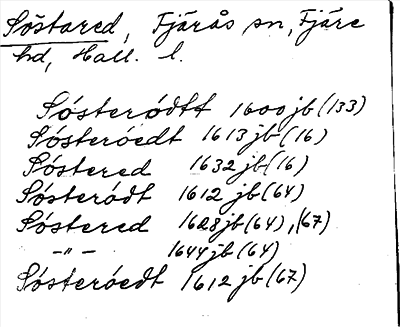 Söstared, Fjärås sn, Fjäre
hd, Hall. l.
Sósteródtt 1600 jb (133)
Sósteróedt 1613 jb (16)
Sóstered 1632 jb (16)
Sósteródt 1612 jb (64)
Sóstered 1628 jb (64), (67)
–"– 1644 jb (64)
Sósteróedt 1612 jb (67)